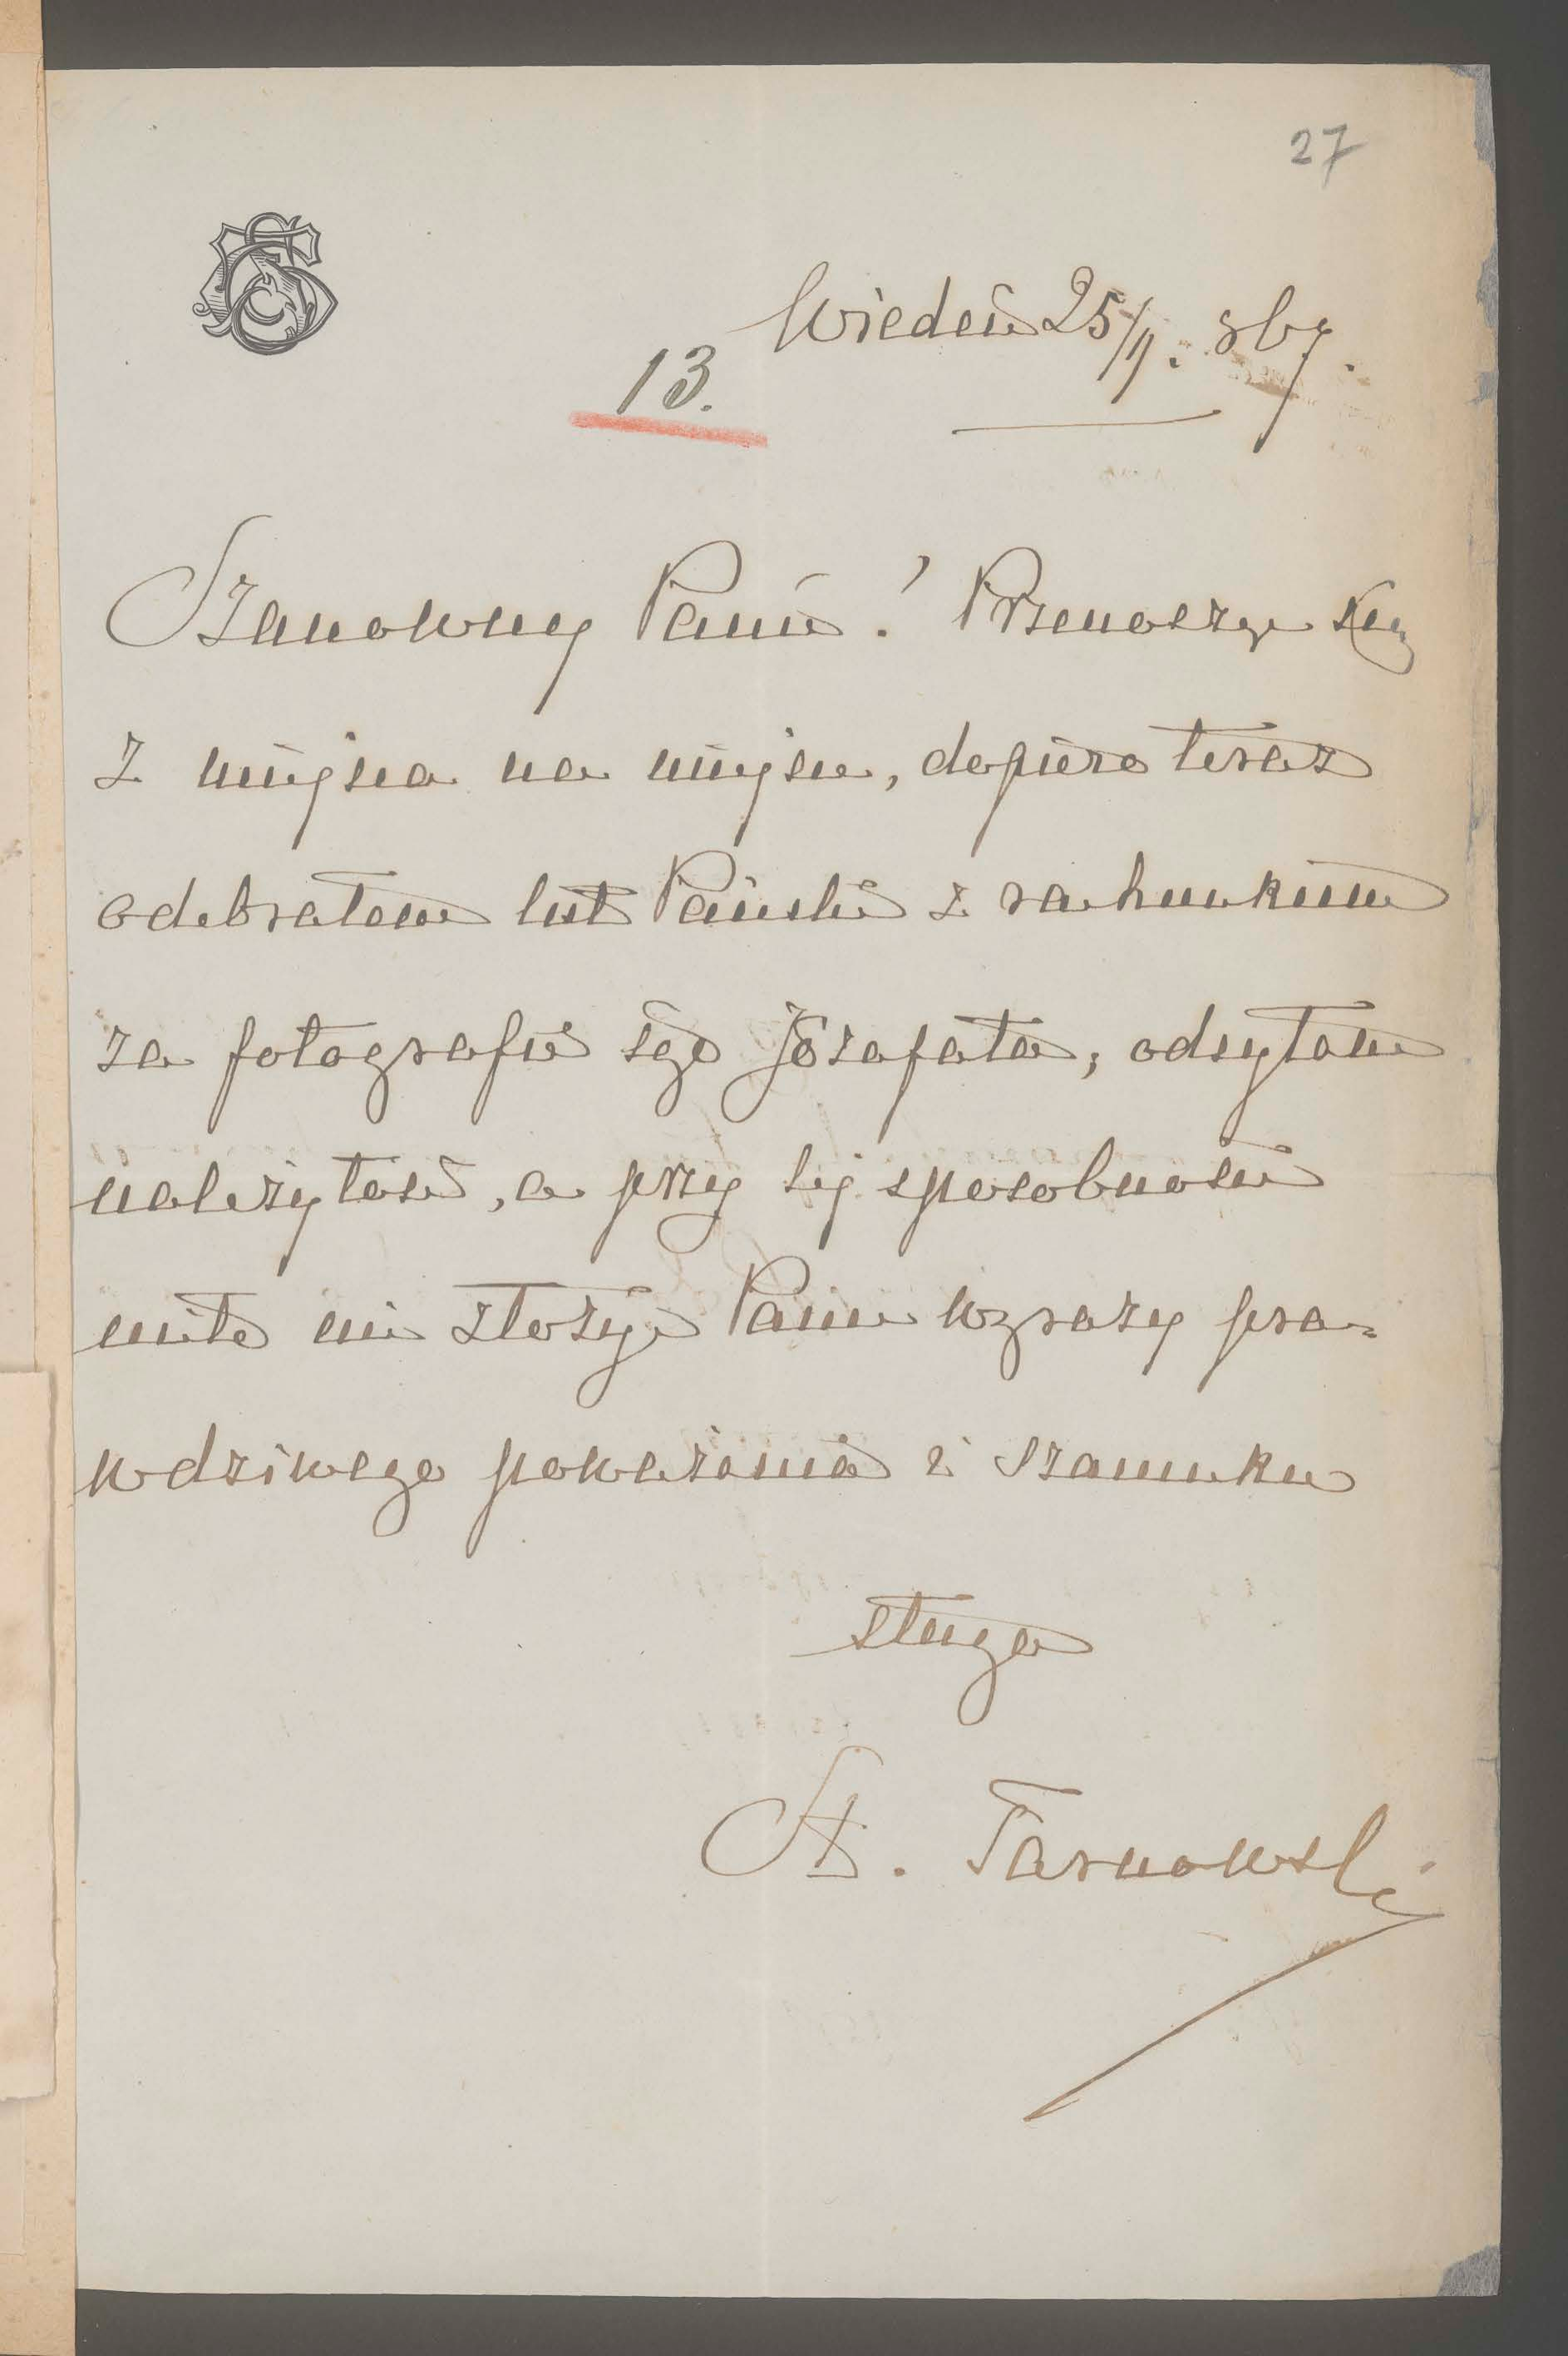 27
Wiedeń 25/9. 867.
13.
Szanowny Panie! Przenosząc się
z miejsca na miejsce, dopiero teraz
odebrałem list Pański z rachunkiem
za fotografie Sgo Jozafata, odsyłam
należytość, a przy tej sposobności
miło mi złożyć Panu wyrazy pra-
wdziwego poważania i szacunku
sługa
St. Tarnowski